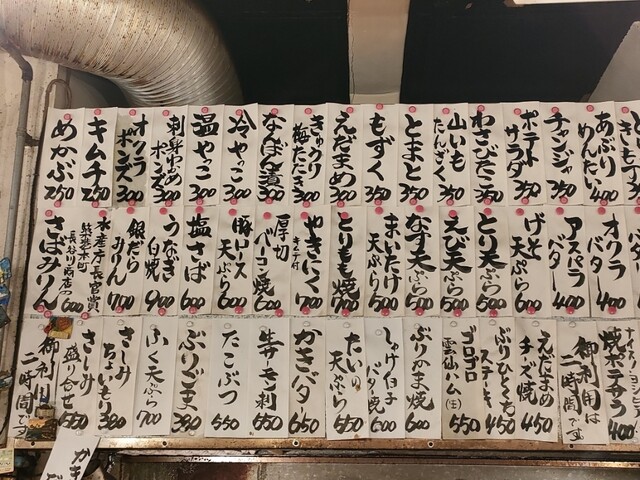 あぶり
めんたい 400
チャンジャ 350
ポテト
サラダ 350
わさびだこ 350
山いも
たんざく 350
とまと 350
もずく 350
えだまめ 300
きゅうり
梅たたき 300
なんばん漬 300
冷やっこ 300
温やっこ 300
刺身わかめ
ポンズ 300
オクラ
ポンズ 300
キムチ 250
めかぶ 250
バタ
オクラ
バタ 400
アスパラ
バタ 400
げそ
天ぷら 500
とり天ぷら 500
えび天ぷら 500
なす天ぷら 500
まいたけ
天ぷら 500
とりもも焼 700
やきにく
キムチ付 700
厚切
ベーコン焼 600
豚ロース
天ぷら 600
塩さば 600
うなぎ
白焼 900
銀だら
みりん 700
水産庁長官賞
長谷川商店の
さばみりん 600
焼ギョウザ 400
御利用は
二時間です
えだまめ
チーズ焼 450
ぶりひとくち
ステーキ 450
ゴロゴロ
雲仙ハム(生) 550
ぶりかま焼 600
しゃけ白子
バタ焼 600
たいの
天ぷら 550
かきバタ 650
生サーモン刺 550
たこぶつ 550
ぶりごま 380
ふく天ぷら 700
さしみ
ちょいもり 380
さしみ
盛り合せ 550
御利用
二時間です
かき